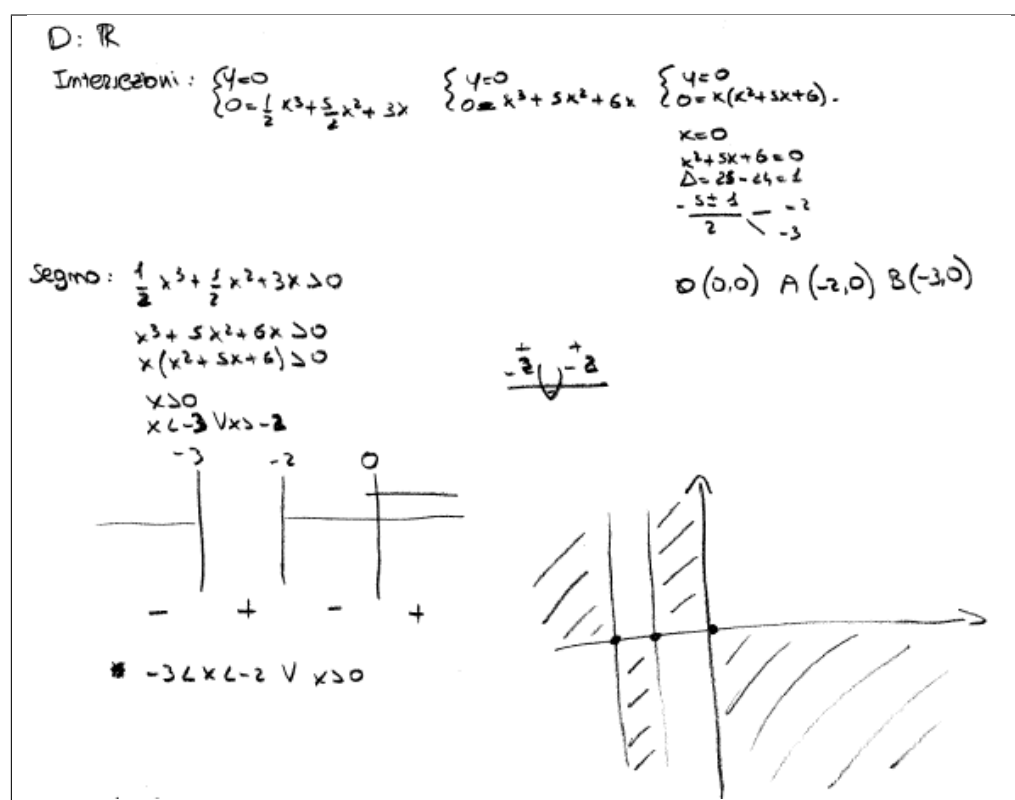 D: ℝ
Intersezioni: {y=0 {0=1/2 x³+5/2 x²+3x {y=0 {0=x³+5x²+6x {y=0 {0=x(x²+5x+6).
x=0
x²+5x+6=0
Δ=25-24=1
-5±1/2 -2
-3
O(0,0) A(-2,0) B(-3,0)
Segno: 1/2 x³+5/2 x²+3x>0
x³+5x²+6x>0
x(x²+5x+6)>0
x>0
x<-3 V x>-2
+ +
-3 -2
-3 -2 0
- + - +
-3<x<-2 V x>0